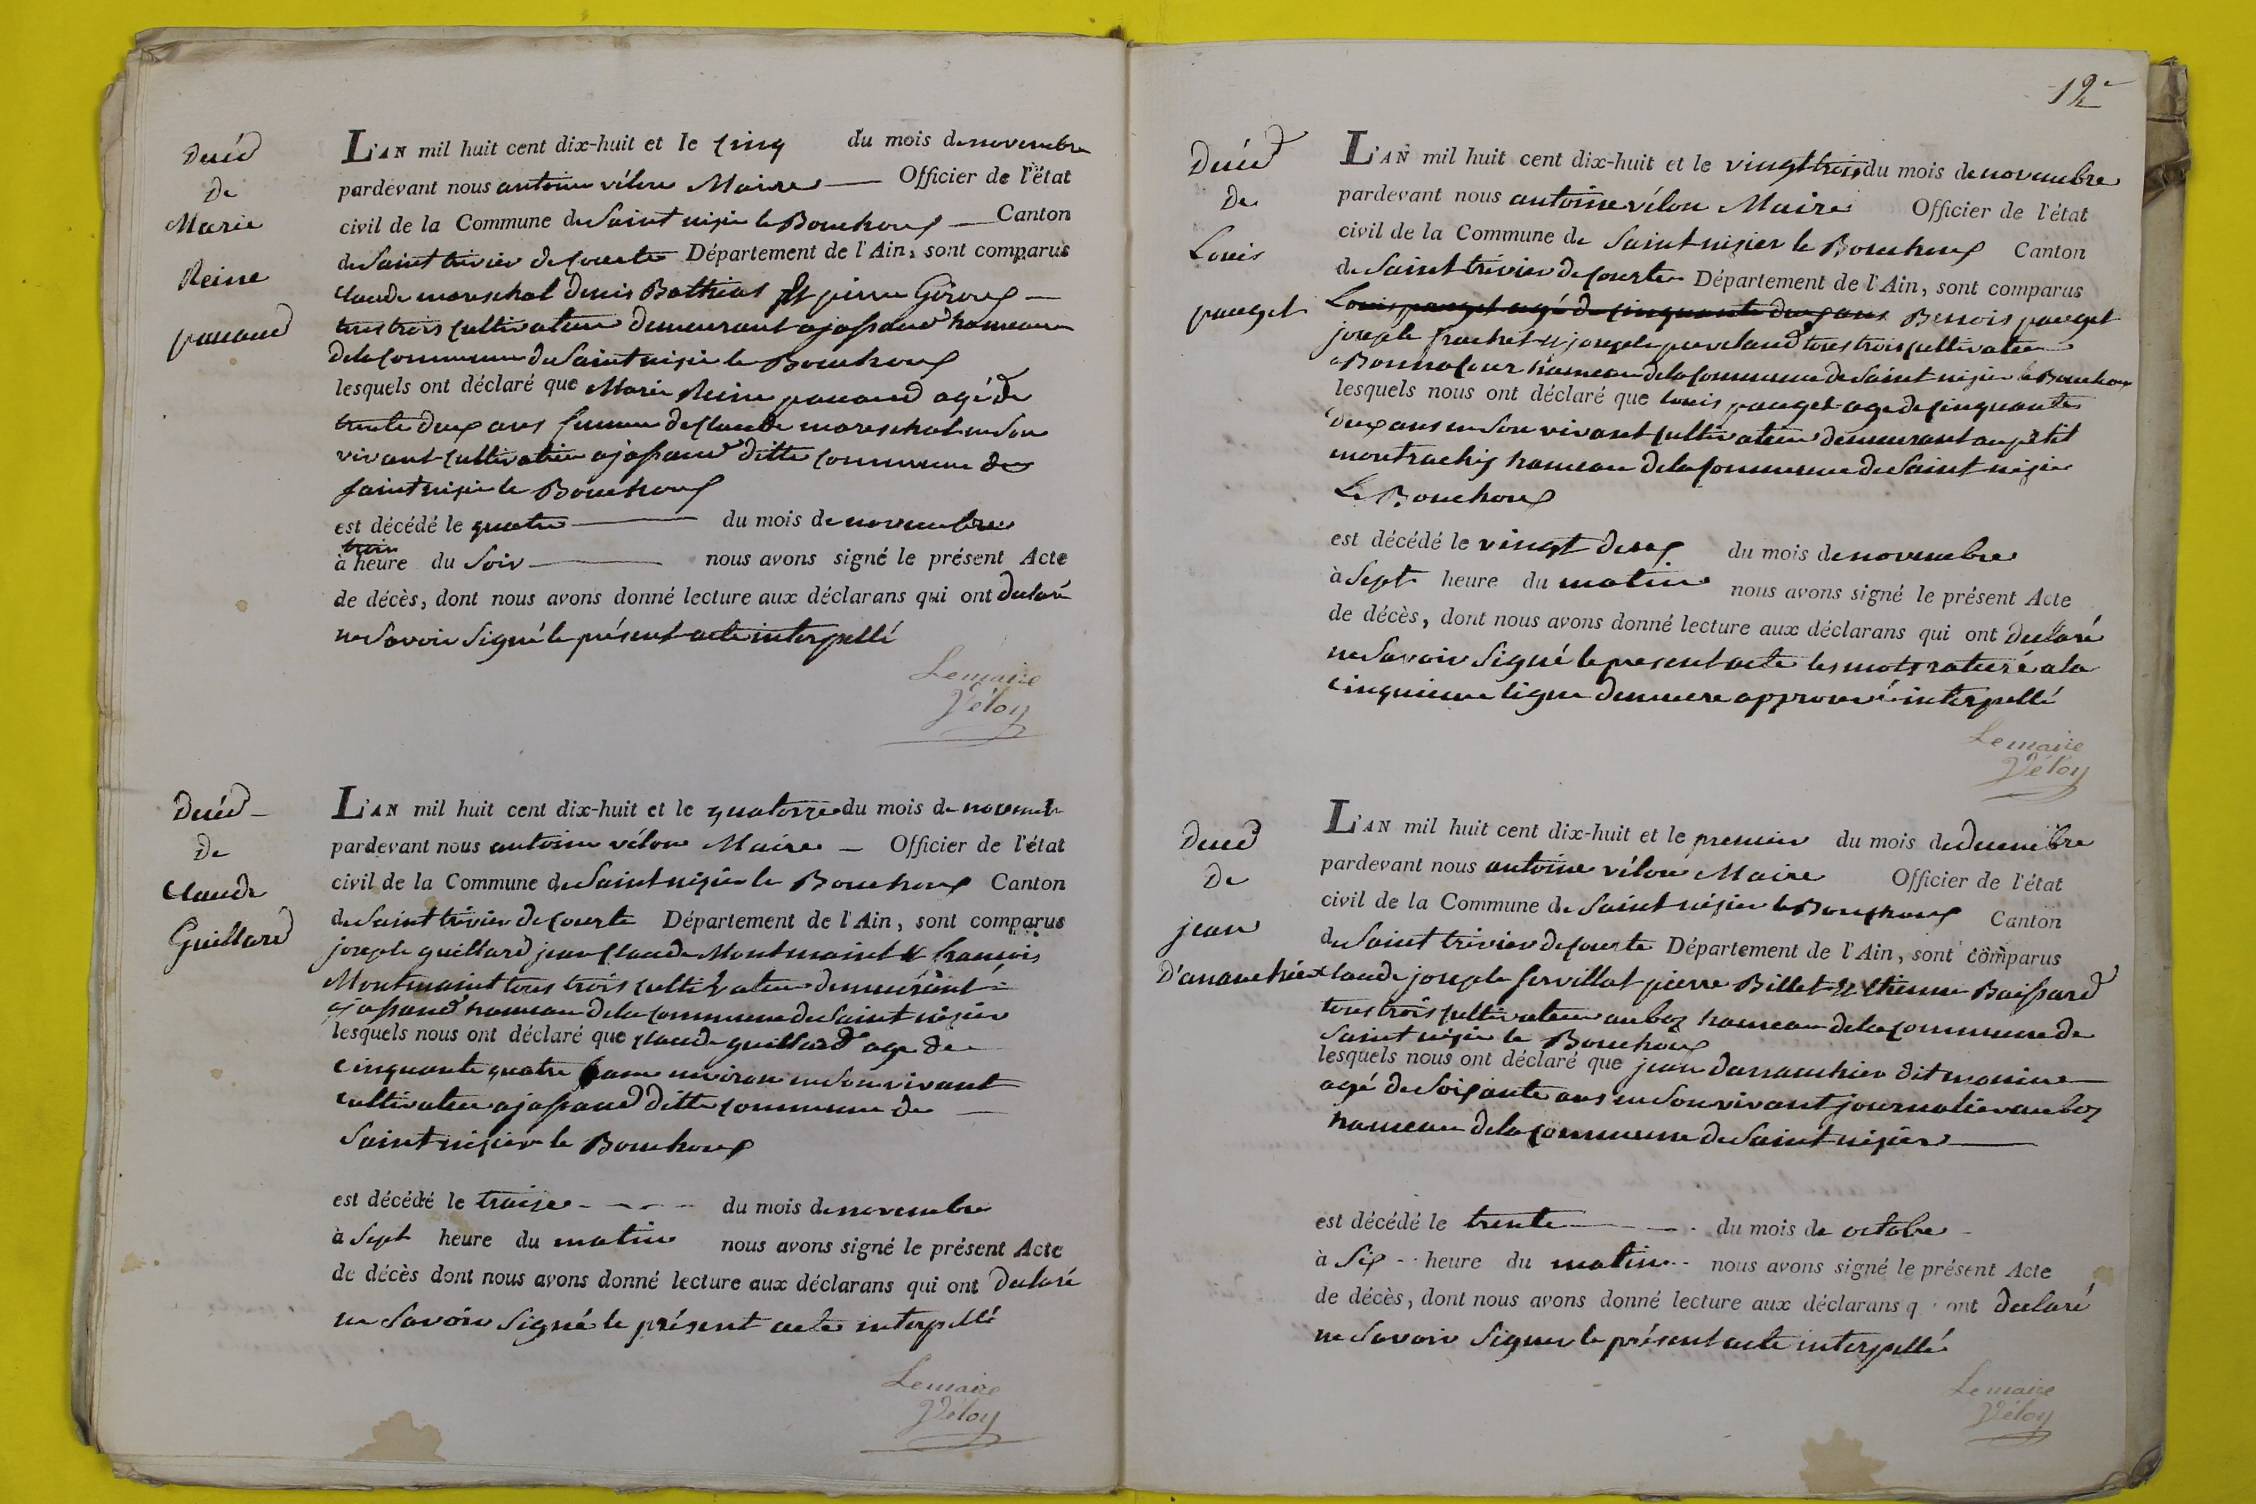 Décéd
de
Marie
Reine
panaud
L'AN mil huit cent dix-huit et le cinq du mois de novembre
pardevant nous antoine vélon Maire Officier de l'état
civil de la Commune de Saint nisier le Bouchoux Canton
de Saint trivier de Courte Département de l'Ain, sont comparus
claude mareschal denis Bathias et pierre Giroux
tous trois cultivateur demeurant a jassand hameau
de la commune de Saint nisier le Bouchoux
lesquels ont déclaré que Marie Reine panaud agé de
trente deux ans femme de claude mareschal en son
vivant cultivatrice a jassand ditte commune de
saint nisier le Bouchoux
est décédé le quatre du mois de novembre
à trois heure du Soir nous avons signé le présent Acte
de décès, dont nous avons donné lecture aux déclarans qui ont declaré
ne Savoir Signé le présent acte interpellé
Le maire
Véloy
Décéd
de
Claude
Guillard
L'AN mil huit cent dix-huit et le quatorze du mois de novemb
pardevant nous antoine vélon Maire Officier de l'état
civil de la Commune de Saint nizier le Bouchoux Canton
de Saint trivier de Courte Département de l'Ain, sont comparus
joseple guillard jean Claude Montmaint et francois
Montmaint tous trois cultivateur demeurant
a jassand hameau de la commune de Saint nizier
lesquels nous ont déclaré que claude guillard age de
cinquante quatre ans environ en son vivant
cultivateur a jassand ditte commune de
Saint nizier le Bouchoux
est décédé le traise du mois de novembre
à Sept heure du matin nous avons signé le présent Acte
de décès dont nous avons donné lecture aux déclarans qui ont declaré
ne Savoir Signé le présent acte interpellé
Le maire
Véloy
12
Décéd
de
Louis
pauget
L'AN mil huit cent dix-huit et le vingt trois du mois de novembre
pardevant nous antoine vélon Maire Officier de l'état
civil de la Commune de Saint nizier le Bouchoux Canton
de Saint trivier de Courte Département de l'Ain, sont comparus
Louis pauget agé de cinquante deux ans Benois pauget
joseple frachet et joseple tous trois cultivateur
a Bonnacour hameau de la commune de Saint nizier le Bouchoux
lesquels nous ont déclaré que louis pauget age de cinquante
deux ans en Son vivant cultivateur demeurant au petit
montrachiz hameau de la commune de Saint nizier
Le Bouchoux
est décédé le vingt deux du mois de novembre
à Sept heure du matin nous avons signé le présent Acte
de décès, dont nous avons donné lecture aux déclarans qui ont declaré
ne Savoir Signé le present acte les mots raturé a la
cinquieme ligne demeure approuvé interpellé
Le maire
Véloy
Deced
de
jean
D'ananchier
L'AN mil huit cent dix-huit et le premier du mois de decembre
pardevant nous antoine vélon Maire Officier de l'état
civil de la Commune de Saint nizier le Bouchoux Canton
de Saint trivier de Courte Département de l'Ain, sont comparus
claude joseple servillat pierre Billet et etienne Baissard
tous trois cultivateur au boz hameau de la commune de
Saint nizier le Bouchoux
lesquels nous ont déclaré que jean dananchier dit
agé de Soixante ans en Son vivant journalier au boz
hameau de la commune de Saint nizier
est décédé le trente du mois de octobre
à Six heure du matin nous avons signé le présent Acte
de décès, dont nous avons donné lecture aux déclarans q ont declaré
ne Savoir Signer le présent acte interpellé
Le maire
Véloy